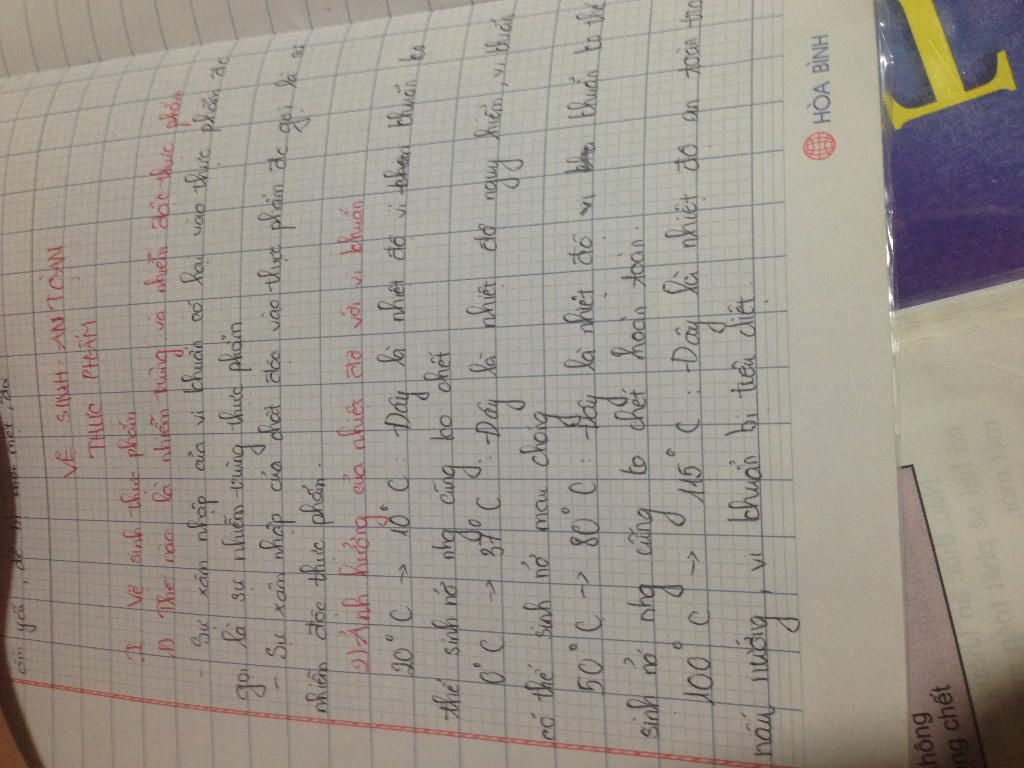 VỆ SINH - AN TOÀN
THỰC PHẨM
I Vệ sinh thực phẩm
1) Thế nào là nhiễm trùng và nhiễm độc thực phẩm
- Sự xâm nhập của vi khuẩn có hại vào thực phẩm đc
gọi là sự nhiễm trùng thực phẩm
- Sự xâm nhập của chất độc vào thực phẩm đc gọi là sự
nhiễm độc thực phẩm.
2) Ảnh hưởng của nhiệt độ với vi khuẩn
20°C → 10°C : Đây là nhiệt độ vi khuẩn ko
thể sinh nở nhg cũng ko chết
0°C → 37°C : Đây là nhiệt độ nguy hiểm, vi khuẩn
có thể sinh nở mau chóng
50°C → 80°C : Đây là nhiệt độ vi khuẩn ko thể
sinh nở nhg cũng ko chết hoàn toàn.
100°C → 115°C : Đây là nhiệt độ an toàn trong
nấu nướng, vi khuẩn bị tiêu diệt.
HÒA BÌNH
hông
ng chết